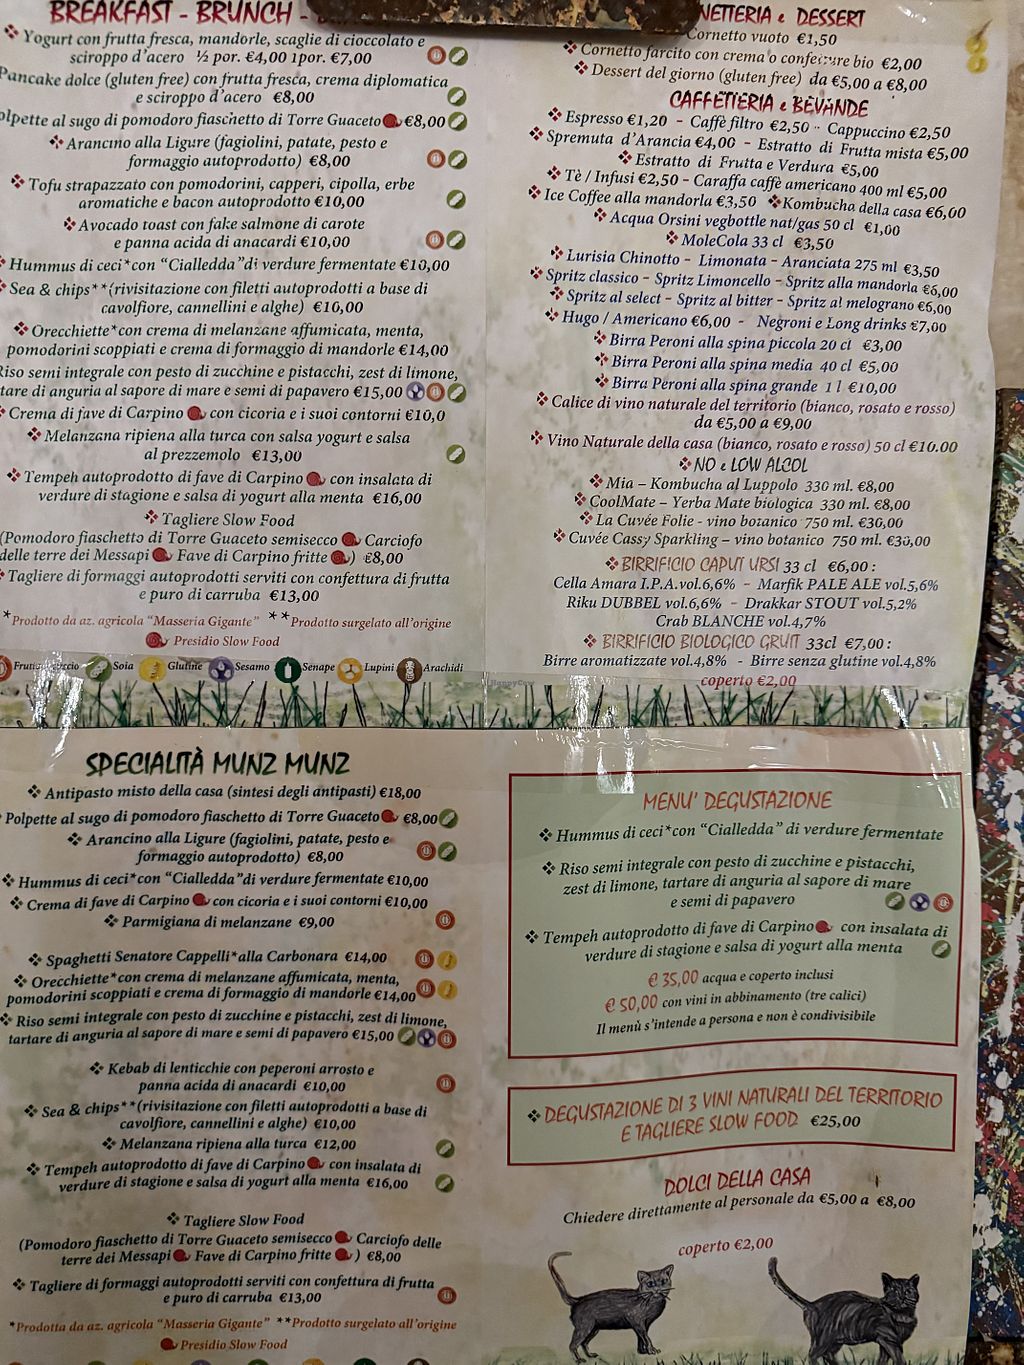 BREAKFAST - BRUNCH -
Yogurt con frutta fresca, mandorle, scaglie di cioccolato e
sciroppo d'acero ½ por. €4,00 1por. €7,00
Pancake dolce (gluten free) con frutta fresca, crema diplomatica
e sciroppo d'acero €8,00
al sugo di pomodoro fiaschetto di Torre Guaceto €8,00
Arancino alla Ligure (fagiolini, patate, pesto e
formaggio autoprodotto) €8,00
Tofu strapazzato con pomodorini, capperi, cipolla, erbe
aromatiche e bacon autoprodotto €10,00
Avocado toast con fake salmone di carote
e panna acida di anacardi €10,00
Hummus di ceci*con "Cialledda"di verdure fermentate €10,00
Sea & chips**(rivisitazione con filetti autoprodotti a base di
cavolfiore, cannellini e alghe) €10,00
Orecchiette*con crema di melanzane affumicata, menta,
pomodorini scoppiati e crema di formaggio di mandorle €14,00
Riso semi integrale con pesto di zucchine e pistacchi, zest di limone,
tare di anguria al sapore di mare e semi di papavero €15,00
Crema di fave di Carpino con cicoria e i suoi contorni €10,0
Melanzana ripiena alla turca con salsa yogurt e salsa
al prezzemolo €13,00
Tempeh autoprodotto di fave di Carpino con insalata di
verdure di stagione e salsa di yogurt alla menta €16,00
Tagliere Slow Food
(Pomodoro fiaschetto di Torre Guaceto semisecco Carciofo
delle terre dei Messapi Fave di Carpino fritte ) €8,00
Tagliere di formaggi autoprodotti serviti con confettura di frutta
e puro di carruba €13,00
*Prodotto da az. agricola "Masseria Gigante" **Prodotto surgelato all'origine
Presidio Slow Food
Soia Glutine Sesamo Senape Lupini Arachidi
NETTERIA e DESSERT
Cornetto vuoto €1,50
Cornetto farcito con crema o confetture bio €2,00
Dessert del giorno (gluten free) da €5,00 a €8,00
CAFFETTERIA e BEVANDE
Espresso €1,20 - Caffè filtro €2,50 - Cappuccino €2,50
Spremuta d'Arancia €4,00 - Estratto di Frutta mista €5,00
Estratto di Frutta e Verdura €5,00
Tè / Infusi €2,50 - Caraffa caffè americano 400 ml €5,00
Ice Coffee alla mandorla €3,50 Kombucha della casa €6,00
Acqua Orsini vegbottle nat/gas 50 cl €1,00
MoleCola 33 cl €3,50
Lurisia Chinotto - Limonata - Aranciata 275 ml €3,50
Spritz classico - Spritz Limoncello - Spritz alla mandorla €6,00
Spritz al select - Spritz al bitter - Spritz al melograno €6,00
Hugo / Americano €6,00 - Negroni e Long drinks €7,00
Birra Peroni alla spina piccola 20 cl €3,00
Birra Peroni alla spina media 40 cl €5,00
Birra Peroni alla spina grande 1 l €10,00
Calice di vino naturale del territorio (bianco, rosato e rosso)
da €5,00 a €9,00
Vino Naturale della casa (bianco, rosato e rosso) 50 cl €10.00
NO e LOW ALCOL
Mia – Kombucha al Luppolo 330 ml. €8,00
CoolMate – Yerba Mate biologica 330 ml. €8,00
La Cuvée Folie - vino botanico 750 ml. €30,00
Cuvée Cassy Sparkling – vino botanico 750 ml. €30,00
BIRRIFICIO CAPUT URSI 33 cl €6,00 :
Cella Amara I.P.A.vol.6,6% - Marfik PALE ALE vol.5,6%
Riku DUBBEL vol.6,6% - Drakkar STOUT vol.5,2%
Crab BLANCHE vol.4,7%
BIRRIFICIO BIOLOGICO GRUIT 33cl €7,00 :
Birre aromatizzate vol.4,8% - Birre senza glutine vol.4,8%
coperto €2,00
HappyCow
SPECIALITÀ MUNZ MUNZ
Antipasto misto della casa (sintesi degli antipasti) €18,00
Polpette al sugo di pomodoro fiaschetto di Torre Guaceto €8,00
Arancino alla Ligure (fagiolini, patate, pesto e
formaggio autoprodotto) €8,00
Hummus di ceci*con "Cialledda"di verdure fermentate €10,00
Crema di fave di Carpino con cicoria e i suoi contorni €10,00
Parmigiana di melanzane €9,00
Spaghetti Senatore Cappelli*alla Carbonara €14,00
Orecchiette*con crema di melanzane affumicata, menta,
pomodorini scoppiati e crema di formaggio di mandorle €14,00
Riso semi integrale con pesto di zucchine e pistacchi, zest di limone,
tartare di anguria al sapore di mare e semi di papavero €15,00
Kebab di lenticchie con peperoni arrosto e
panna acida di anacardi €10,00
Sea & chips**(rivisitazione con filetti autoprodotti a base di
cavolfiore, cannellini e alghe) €10,00
Melanzana ripiena alla turca €12,00
Tempeh autoprodotto di fave di Carpino con insalata di
verdure di stagione e salsa di yogurt alla menta €16,00
Tagliere Slow Food
(Pomodoro fiaschetto di Torre Guaceto semisecco Carciofo delle
terre dei Messapi Fave di Carpino fritte ) €8,00
Tagliere di formaggi autoprodotti serviti con confettura di frutta
e puro di carruba €13,00
*Prodotta da az. agricola "Masseria Gigante" **Prodotto surgelato all'origine
Presidio Slow Food
MENU' DEGUSTAZIONE
Hummus di ceci*con "Cialledda" di verdure fermentate
Riso semi integrale con pesto di zucchine e pistacchi,
zest di limone, tartare di anguria al sapore di mare
e semi di papavero
Tempeh autoprodotto di fave di Carpino con insalata di
verdure di stagione e salsa di yogurt alla menta
€ 35,00 acqua e coperto inclusi
€ 50,00 con vini in abbinamento (tre calici)
Il menù s'intende a persona e non è condivisibile
DEGUSTAZIONE DI 3 VINI NATURALI DEL TERRITORIO
E TAGLIERE SLOW FOOD €25,00
DOLCI DELLA CASA
Chiedere direttamente al personale da €5,00 a €8,00
coperto €2,00